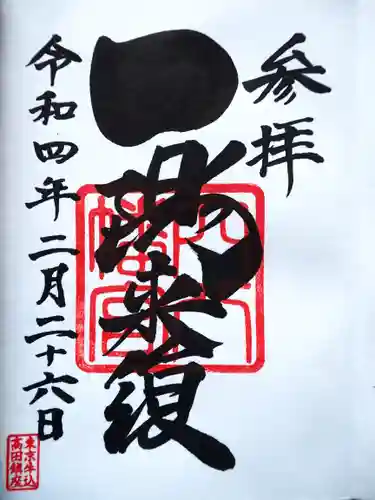 参拝
一陽来復
八幡宮
令和四年二月二十六日
東京牛込
高田鎮座